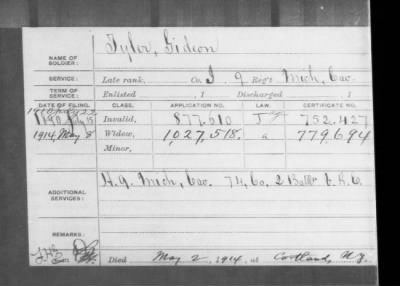 Tyler, Gideon
NAME OF SOLDIER:
SERVICE: Late rank, Co. I, 9 Reg't Mich. Cav.
TERM OF SERVICE: Enlisted , 1 Discharged , 1
DATE OF FILING. CLASS. APPLICATION NO. LAW. CERTIFICATE NO.
1890, July 15 Invalid, 877,510 752,427
1914, May 8 Widow, 1,027,518. a 779,694
Minor,
ADDITIONAL SERVICES: H. 9. Mich. Cav. 74, Co. 2 Batt'n V. R. C.
REMARKS:
Died May 2, 1914, at Cortland, N.Y.